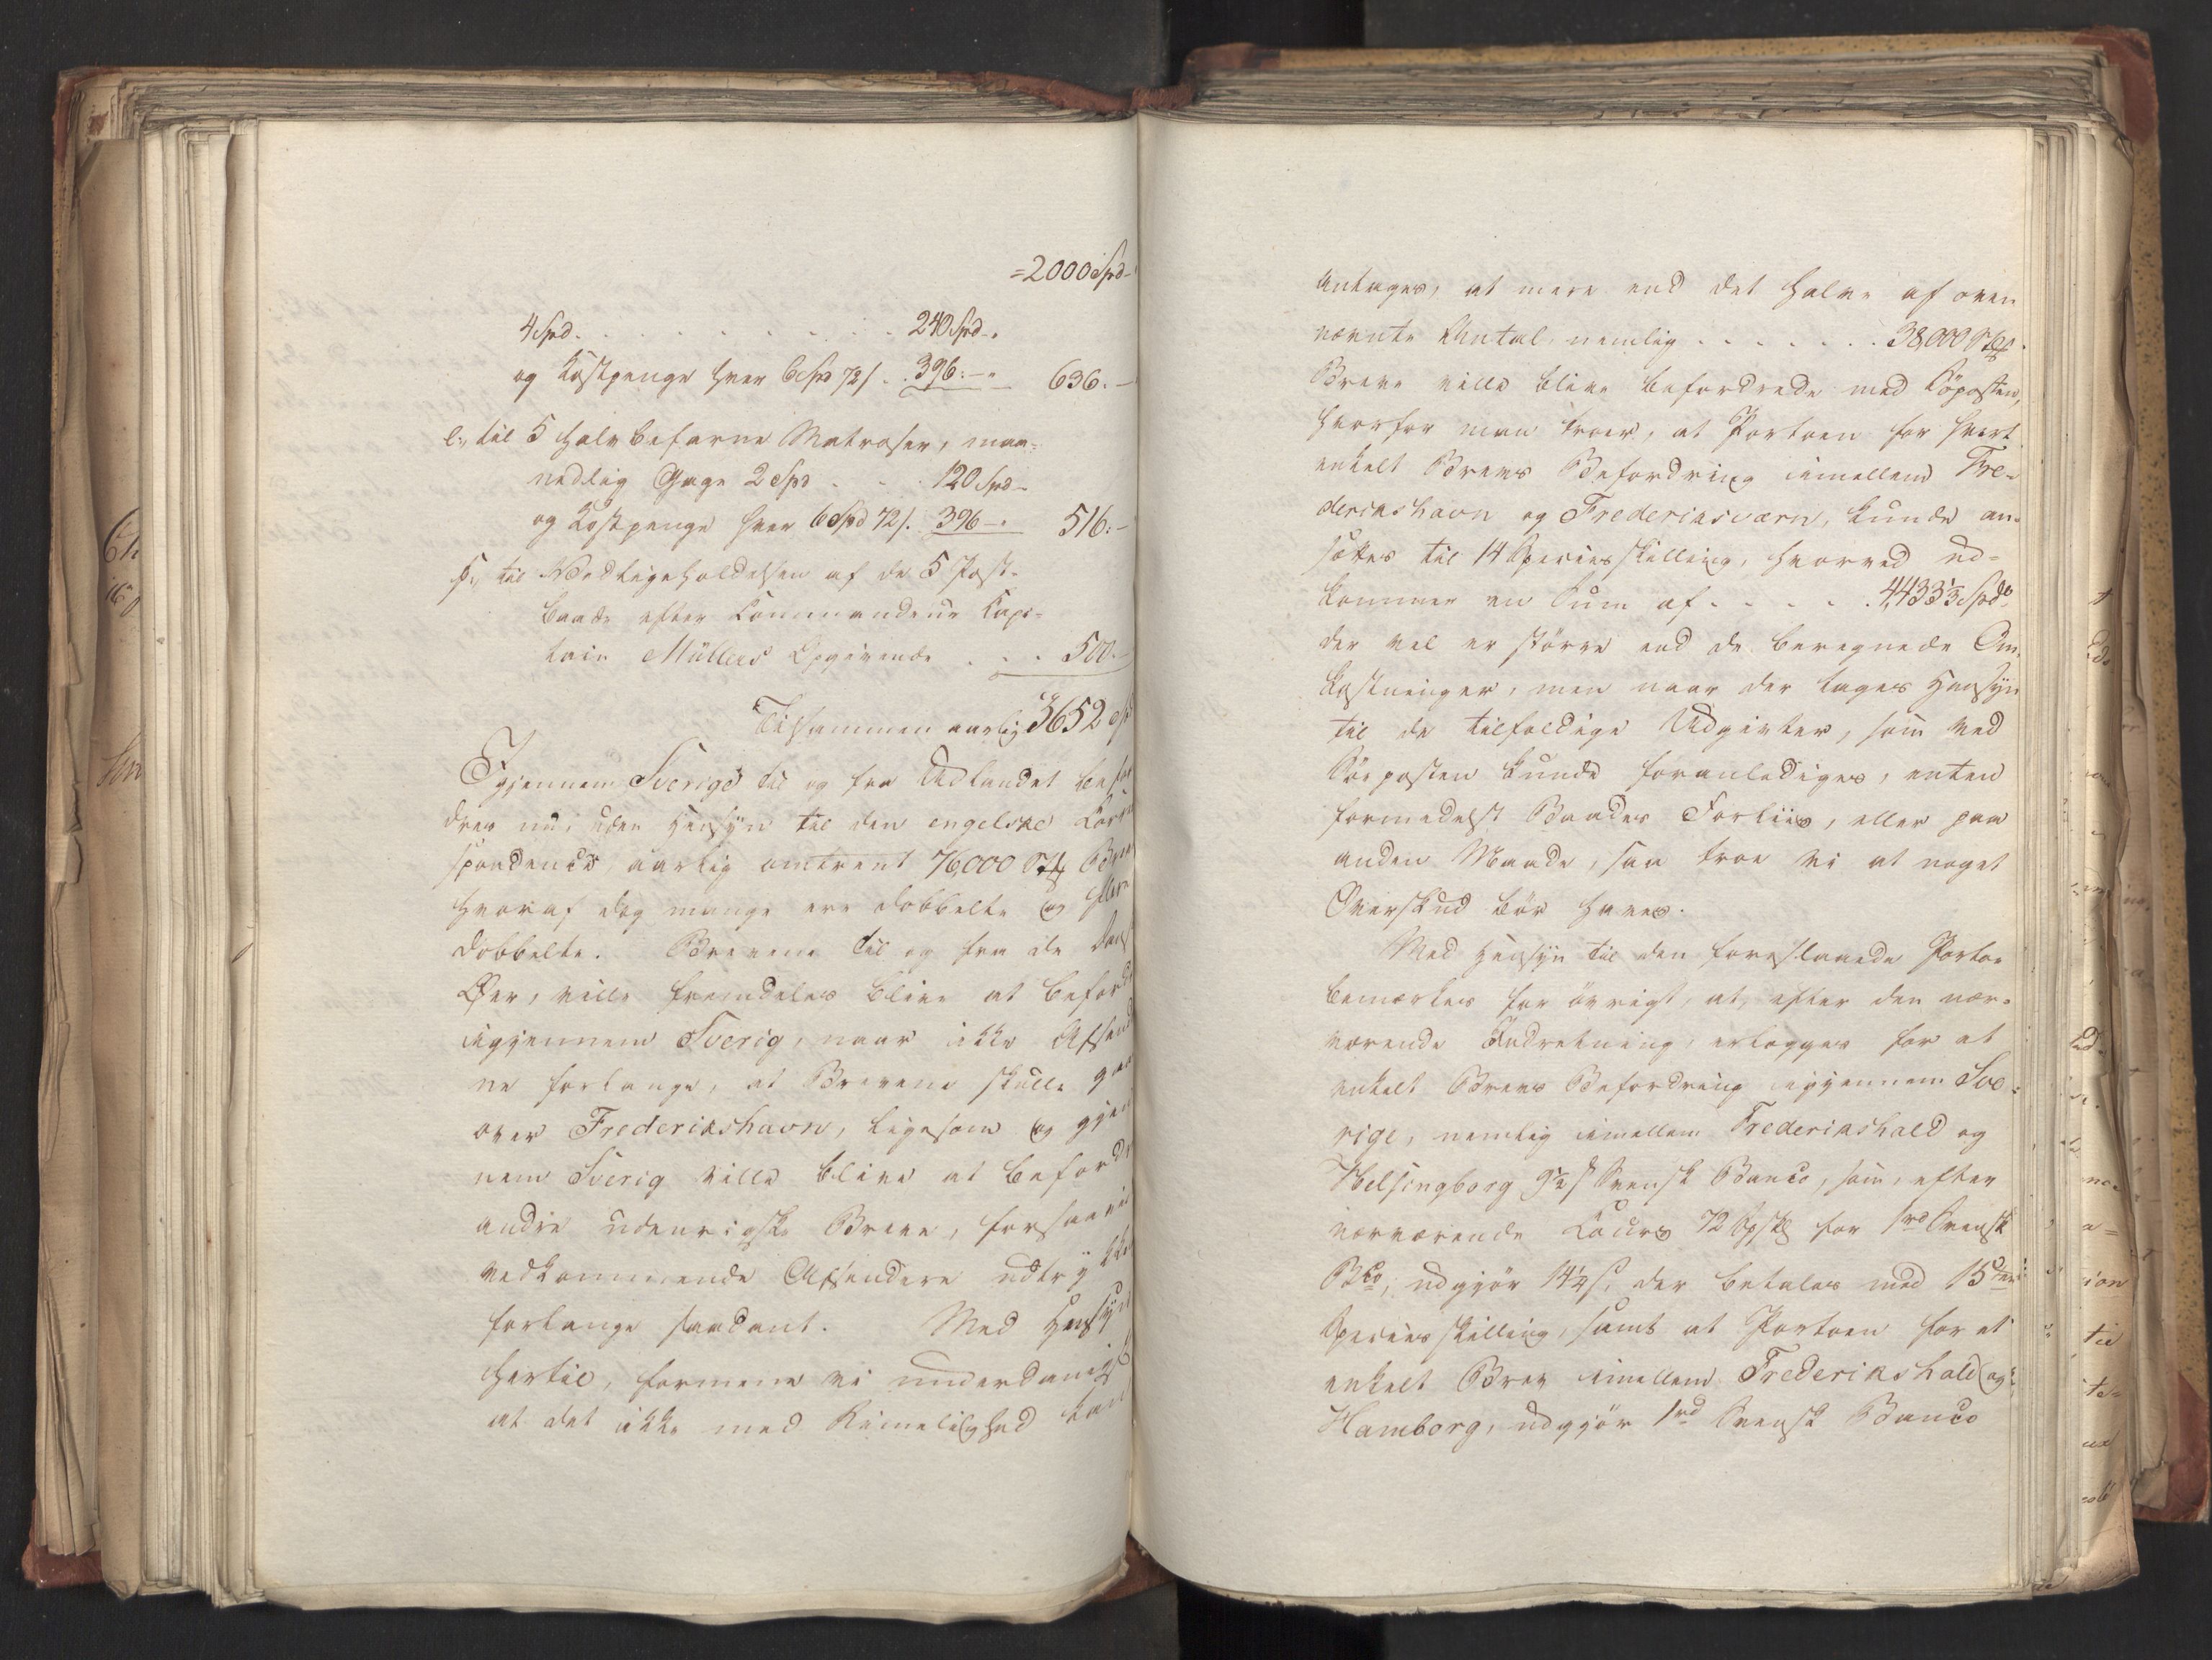 =2000 Spd
4 Spd. . . . . . . . . . . 240 Spd.
og Kostpenge hver 6 Spd 72 s. . 396.— 636.—
e., til 5 halvbefarne Matroser, maa-
nedlig Gage 2 Spd . . . 120 Spd
og Kostpenge hver 6 Spd 72 s. 396— 516.—
f., til Vedligeholdelsen af de 5 Post-
baade efter Commandeur Capi-
tain Müllers Opgivende . . . 500.—
Tilsammen aarlig 3652 Sp
Igjennem Sverige til og fra Udlandet befor
dres nu, uden Hensyn til den engelske Corre
spondence, aarlig omtrent 76,000 Stk Breve
hvoraf dog mange ere dobbelte og fleer
dobbelte. Brevene til og fra de Danske
Øer, ville fremdeles blive at befordre
igjennem Sverig, naar ikke Afsender
ne forlange, at Brevene skulle gaae
over Frederikshavn, ligesom og gjen
nem Sverig ville blive at befordre
andre udenrigske Breve, forsaavidt
vedkommende Afsendere udtrykkelig
forlange saadant. Med Hensyn
hertil, formene vi underdanigst
at det ikke med Rimelighed kan
antages, at mere end det halve af oven
nævnte Antal, nemlig . . . . . . . 38,000 Stk
Breve ville blive befordrede med Söeposten,
hvorfor man troer, at Portoen for hvert
enkelt Brevs Befordring imellem Fre-
derikshavn og Frederiksværn, kunde an-
sættes til 14 Speciesskilling, hvorved ud-
kommer en Sum af . . . . . 4,433⅓ Spd
der vel er större end de beregnede Om-
kostninger, men naar der tages Hensyn
til de tilfældige Udgivter, som ved
Söeposten kunde foranlediges, enten
formedelst Baades Forliis, eller paa
anden Maade, saa troe vi at noget
Overskud bör haves.
Med Hensyn til den foreslaaede Porto
bemærkes for övrigt, at, efter den nær-
værende Indretning, erlægges for et
enkelt Brevs Befordring igjennem Sve-
rige, nemlig imellem Frederikshald og
Helsingborg 9½ s Svensk Banco, som, efter
nærværende Cours 72 Spsk for 1 rd Svensk
Bco, udgjör 14¼ s, der betales med 15 den
Speciesskilling, samt at Portoen for et
enkelt Brev imellem Frederikshald og
Hamborg, udgjör 1 rd Svensk Banco